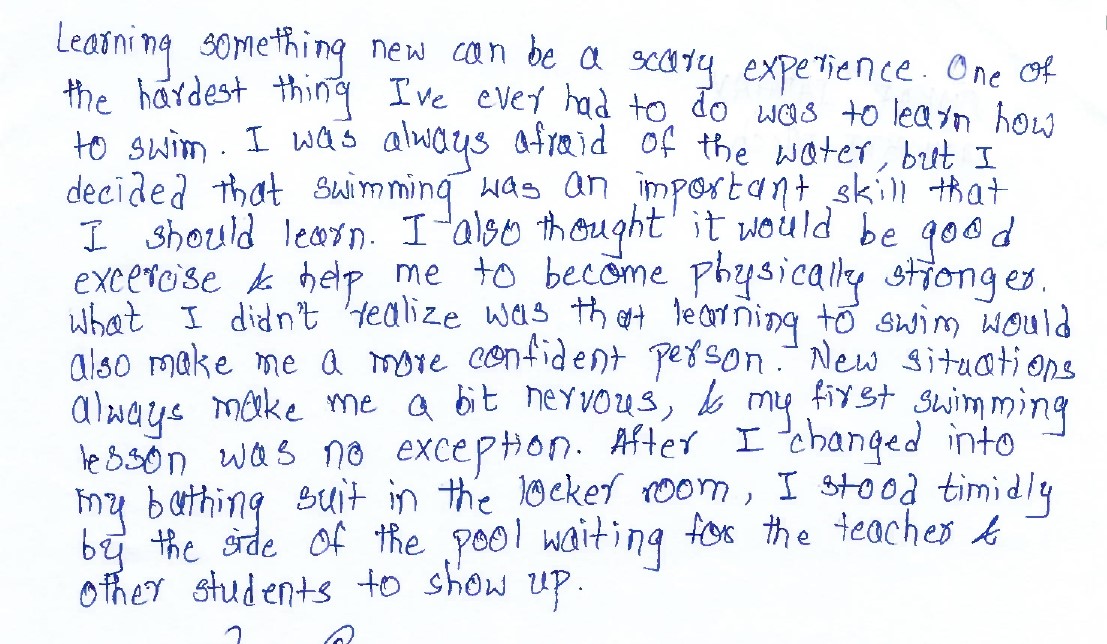 Learning something new can be a scary experience. One of
the hardest thing I've ever had to do was to learn how
to swim. I was always afraid of the water, but I
decided that swimming was an important skill that
I should learn. I also thought it would be good
excercise & help me to become physically stronger.
What I didn't realize was that learning to swim would
also make me a more confident person. New situations
always make me a bit nervous, & my first swimming
lesson was no exception. After I changed into
my bathing suit in the locker room, I stood timidly
by the side of the pool waiting for the teacher &
other students to show up.